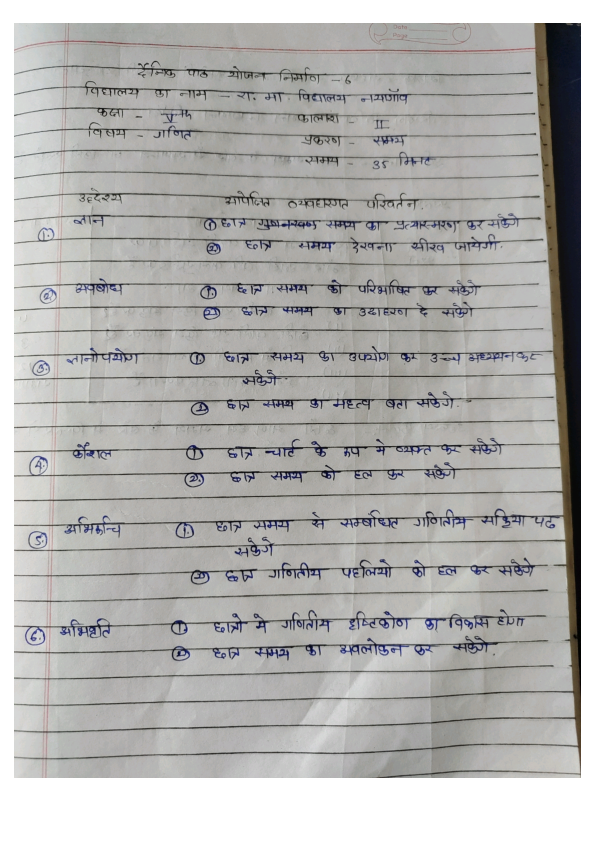 Date
Page
दैनिक पाठ योजन निर्माण - 6
विद्यालय का नाम - रा. मा. विद्यालय नयागाँव
कक्षा - Vth कालांश - II
विषय - गणित प्रकरण - समय
समय - 35 मिनट
उद्देश्य अपेक्षित व्यवहारगत परिवर्तन.
1. ज्ञान 1 छात्र समय का प्रत्यास्मरण कर सकेगे
2 छात्र समय देखना सीख जायेगी.
2. अवबोध 1. छात्र समय को परिभाषित कर सकेगे
2 छात्र समय का उदाहरण दे सकेगे
3. ज्ञानोपयोग 1. छात्र समय का उपयोग कर उच्च अध्ययन कर
सकेगे.
2 छात्र समय का महत्व बता सकेगे.
4. कौशल 1 छात्र चार्ट के रूप मे व्यक्त कर सकेगे
2. छात्र समय को हल कर सकेगे
5. अभिरूचि 1. छात्र समय से सम्बंधित गणितीय सक्रिया पढ
सकेगे
2 छात्र गणितीय पहलियो को हल कर सकेगे
6. अभिवृति 1 छात्रो मे गणितीय दृष्टिकोण का विकास होगा
2 छात्र समय का अवलोकन कर सकेगे.